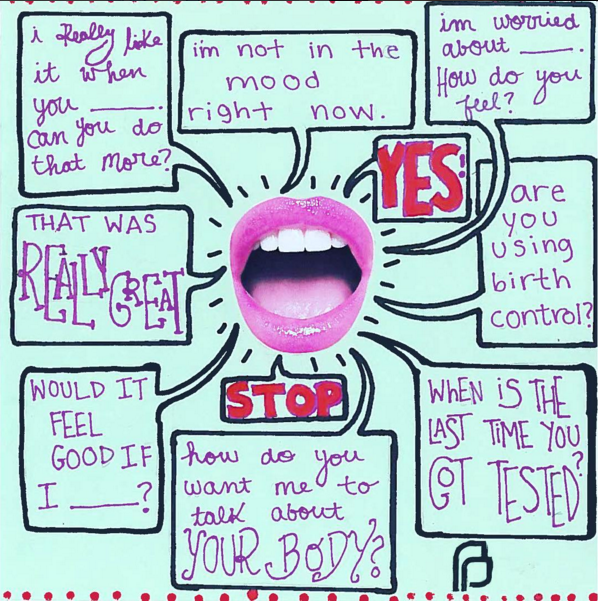 i Really like
it when
you ____.
can you do
that more?
i'm not in the
mood
right now.
im worried
about ____.
How do you
feel?
YES!
are
you
using
birth
control?
THAT WAS
REALLY GREAT
WOULD IT
FEEL
GOOD IF
I ____?
STOP
how do you
want me to
talk about
YOUR BODY?
WHEN iS THE
LAST TiME YOU
GOT TESTED?